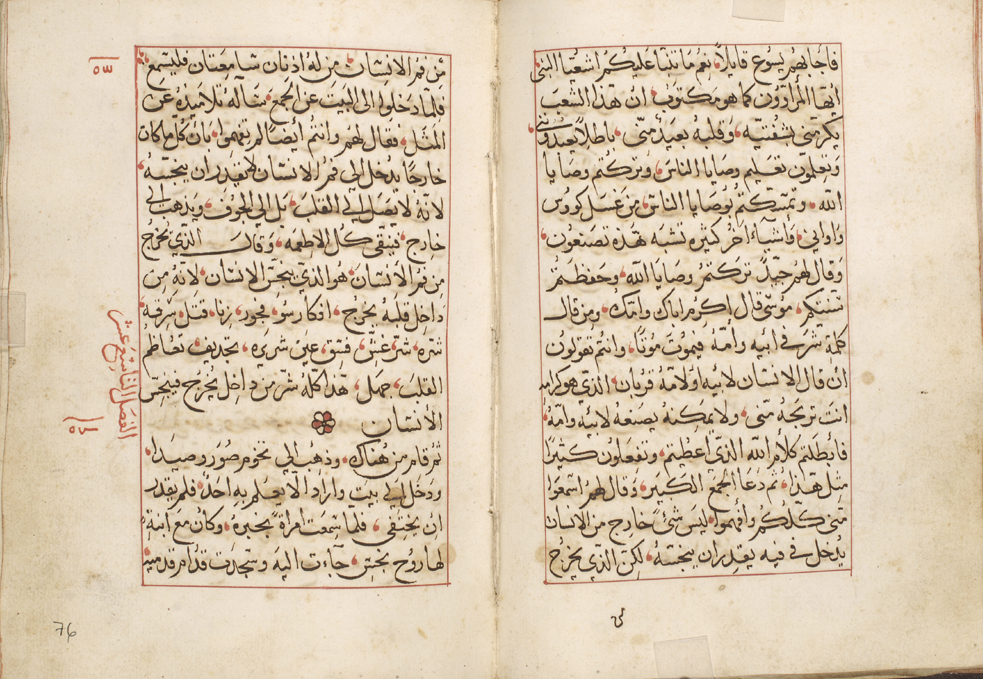 فاجابهم يسوع قايلًا نعم ما تنبا عليكم اشعيا النبي
ايها المراؤون كما هو مكتوب ان هذا الشعب
يكرمني بشفتيه وقلبه بعيد مني باطلًا يعبدونني
ويعلمون تعليم وصايا الناس وتركتم وصايا
الله وتمسكتم بوصايا الناس من غسل كووس
واواني واشياء اخر كثيره تشبه هذه تصنعون
وقال لهم جيدًا تركتم وصايا الله وحفظتم
سنتكم موسى قال اكرم اباك وامك ومن قال
كلمة شر في ابيه وامه فيموت موتًا وانتم تقولون
ان قال الانسان لابيه او لامه قربان الذي هو كرامه
انت تربحه مني ولا يمكنه يصنعه لابيه وامه
فابطلتم كلام الله الذي اعطيتم وتفعلون كثيرًا
مثل هذا ثم دعا الجمع الكبير وقال لهم اسمعوا
مني كلكم وافهموا ليس شئ خارج من الانسان
يدخل في فيه يقدر ان ينجسه لكن الذي يخرج
من فم الانسان من له اذنان سامعتان فليسمع
فلما دخلوا الى البيت عن الجمع ساله تلاميذه عن
المثل فقال لهم وانتم ايضًا لم تفهموا بان كلما كان
خارجًا يدخل الى فم الانسان لم يقدر ان ينجسه
لانه لا يصل الى القلب بل الى الجوف ويذهب الى
خارج فينقي كل الاطعمه وقال الذي يخرج
من فم الانسان هو الذي ينجس الانسان لانه من
داخل قلبه يخرج افكار سو فجور زنا قتل سرقه
شره شر غش فسق عين شريره تجديف تعاظم
القلب جهل هذا كله شر من داخل يخرج فينجس
الانسان
ثم قام من هناك وذهب الى تخوم صور وصيدا
ودخل الى بيت واراد الا يعلم به احد فلم يقدر
ان يختفي فلما سمعت امراة بخبره وكان مع ابنة
لها روح نجس جاءت اليه وسجدت قدام قدميه
٥٣
الفصل التاسع عشر
٥٤
76